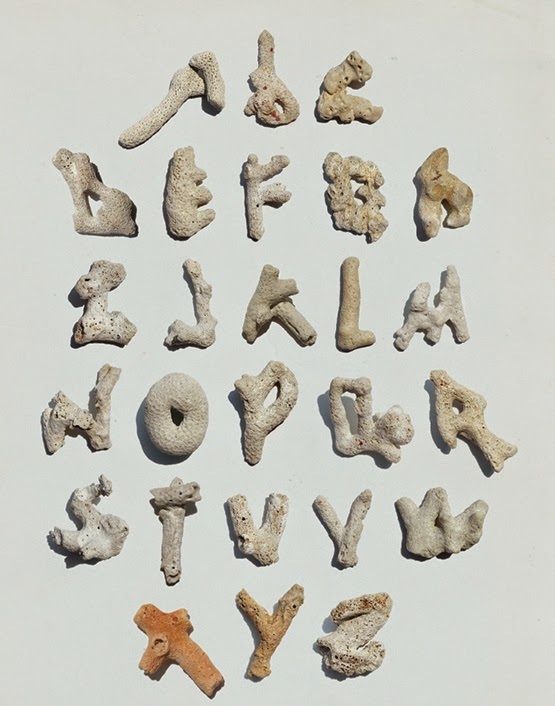 A b C
D E F G h
I J K L M
N O P Q R
S T U V W
X Y Z